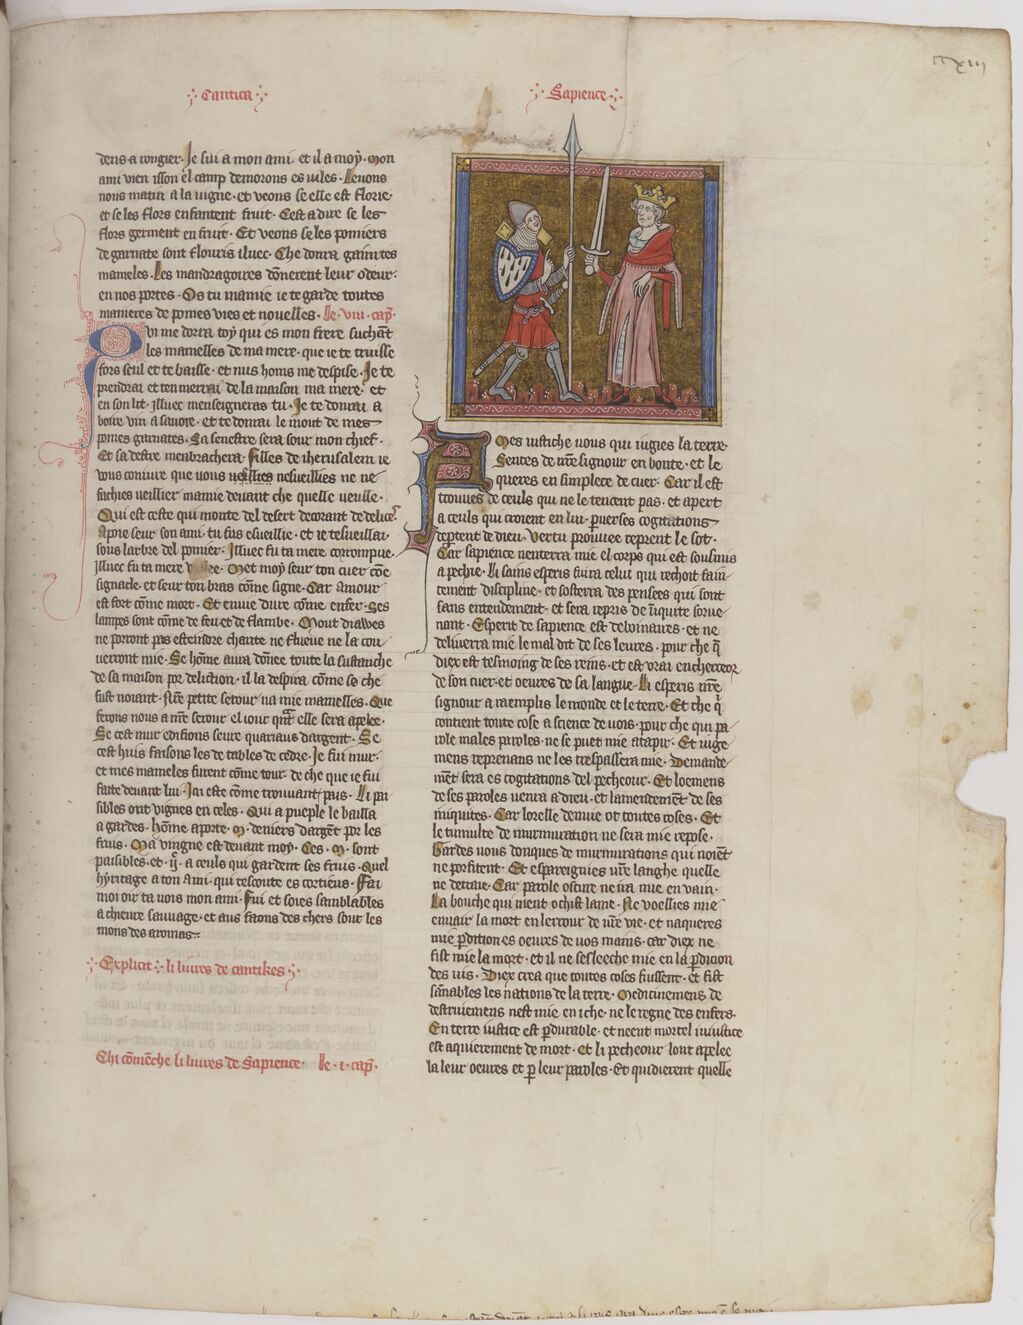 Cantica
dens a rongier. Je sui a mon ami. et il a moy. Mon
ami vien isson el camp demorons es viles. Levons
nous matin a la vigne. et veons se elle est florie.
et se les flors enfantent fruit. Cest a dire se les
flors germent en fruit. Et veons se les pomiers
de garnate sont flouris illuec. Che donra
mameles. Les mandragoires donerent leur odeur.
en nos portes. Os tu mamie ie te garde toutes
manieres de pomes vies et nouelles. le. viii. cap̃.
Qui me dorra toy qui es mon frere suchãt
les mamelles de ma mere. que ie te truisse
fors seul et te baisse. et nus homs me despise. Je te
prendrai et tenmerrai de la maison ma mere. et
en son lit. Illuec menseigneras tu. Je te donrai a
boire vin a savore. et te donrai le moust de mes
pomes garnates. Sa senestre sera sour mon chief.
Et sa destre menbrachera. Filles de iherusalem ie
vous coniure que vous nesuellies ne
fachies veillier mamie devant che quelle veulle.
Qui est ceste qui monte del desert decorant de delices
Apoie seur son ami. tu fus esueillie. et ie tesueillai.
sous larbre del pomier. Illuec fu ta mere corrompue.
Illuec fu ta mere. Met moy seur ton cuer cõe
signacle. et seur ton bras cõme signe. Car amour
est fort cõme mort. Et envie dure cõme enfer. Ses
lampes sont cõme de feu et de flambe. Mout diawes
ne porront pas esteindre charite ne flueve ne la cou
uerront mie. Se hõme aura dõnee toute la sustanche
de sa maison por delection. il la despira cõme se che
fust noiant. Nr̃e petite serour na mie mamelles. Que
ferons nous a nr̃e serour el iour qñt elle sera apelee.
Se cest mur edifions seure quariaus dargent. Se
cest huis faisons les de tables de cedre. Je sui mur.
et mes mameles furent cõme tour. de che que ie fui
faite devant lui. Jai este cõme trouvant pais. Li pai
sibles out vignes en celes. Qui a pueple le bailla
a gardes. hõme aporte. m. deniers dargẽt por les
fruis. Ma vingne est devant moy. Ces. m. sont
paisibles. et a ceuls qui gardent ses fruis. Quel
hyritage a ton ami. qui tescoute es cortieus. Fai
moi oir ta vois mon ami. Fui et soies samblables
a chieure sauuage. et aus faons des chers sour les
mons des aromas.
Explicit li livres de cantikes
Chi cõmẽche li livres de Sapience. le. i. cap̃.
Sapience
Ames iustiche vous qui iugies la terre.
Sentes de nr̃e signour en bonte. et le
queres en simplece de cuer. Car il est
trouves de ceuls qui ne le tencent pas. et apert
a ceuls qui croient en lui. puerses cogitations
de dieu. Vertu prouvee reprent le sot.
Car sapience nenterra mie el corps qui est sousmis
a pechie. Li sains esperis fuira celui qui rechoit fain
tement discipline. et sosterra des pensees qui sont
sans entendement. et sera repris de iniquite sorue
nant. Esperit de sapience est deboinaires. et ne
deliuerra mie le mal dit de ses leures. pour che q̃
diex est tesmoing de ses reins. et est vrai encherceor
de son cuer. et oeures de sa langue. Li esperis nr̃e
signour a raemplis le monde et le terre. Et che q̃
contient toute cose a science de vois. pour che qui pa
role males paroles. ne se puet mie atapir. Et iuge
mens reprenans ne les trespassera mie. Demande
mẽt sera es cogitations del pecheour. Et loemens
de ses paroles uenra a dieu. et lamendemẽt de ses
iniquites. Car lorelle denuie ot toutes coses. Et
le tumulte de murmuration ne sera mie repose.
Gardes vous donques de murmurations qui noiẽt
ne porfitent. Et espareignies vr̃e langhe quelle
ne detraie. Car parole oscure ne ira mie en vain.
La bouche qui ment ochist lame. Ne voellies mie
enuair la mort en lerrour de vr̃e vie. et naqueres
mie pdition es oeures de vos mains. car diex ne
fist mie la mort. et il ne sesleeche mie en la pdicion
des vis. Diex crea que toutes coses fiussent. et fist
sãnables les nations de la terre. Medicinemens de
destruiemens nest mie en iche. ne le regne des enfers.
En terre iustice est pdurable. et neent mortel iniustice
est aquierement de mort. et li pecheour lont apelee
la leur oeures et p leur paroles. Et quidierent quelle